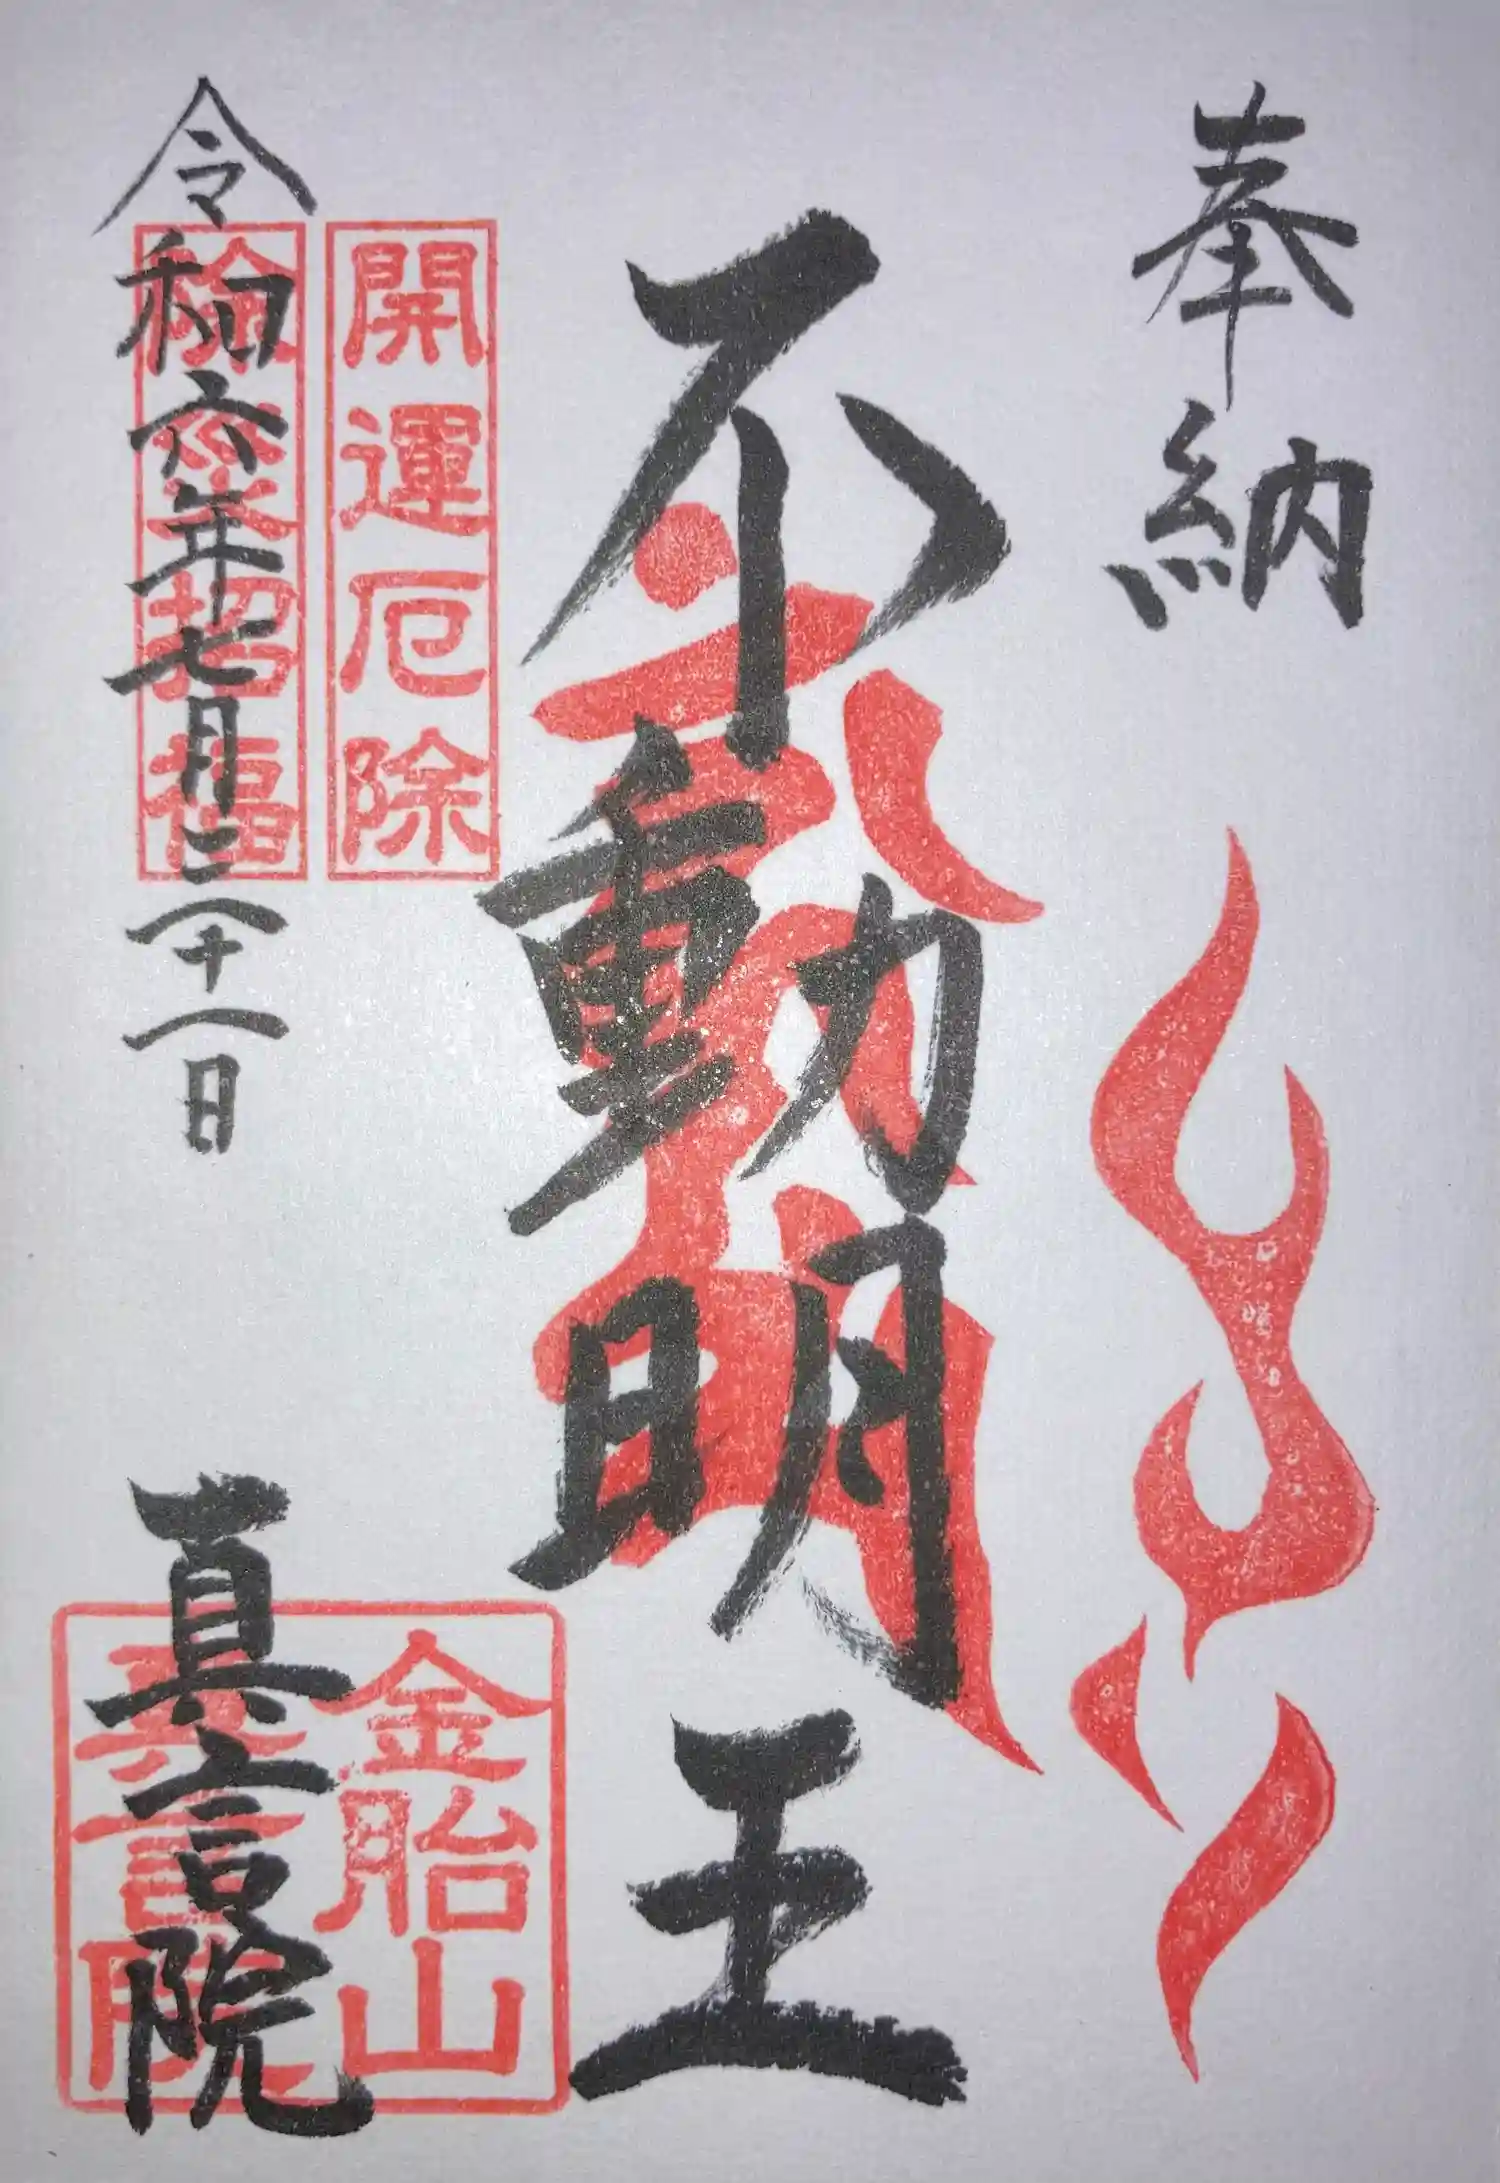 奉納
不動明王
開運厄除
除災招福
令和六年七月三十一日
金胎山
真言院
真言院